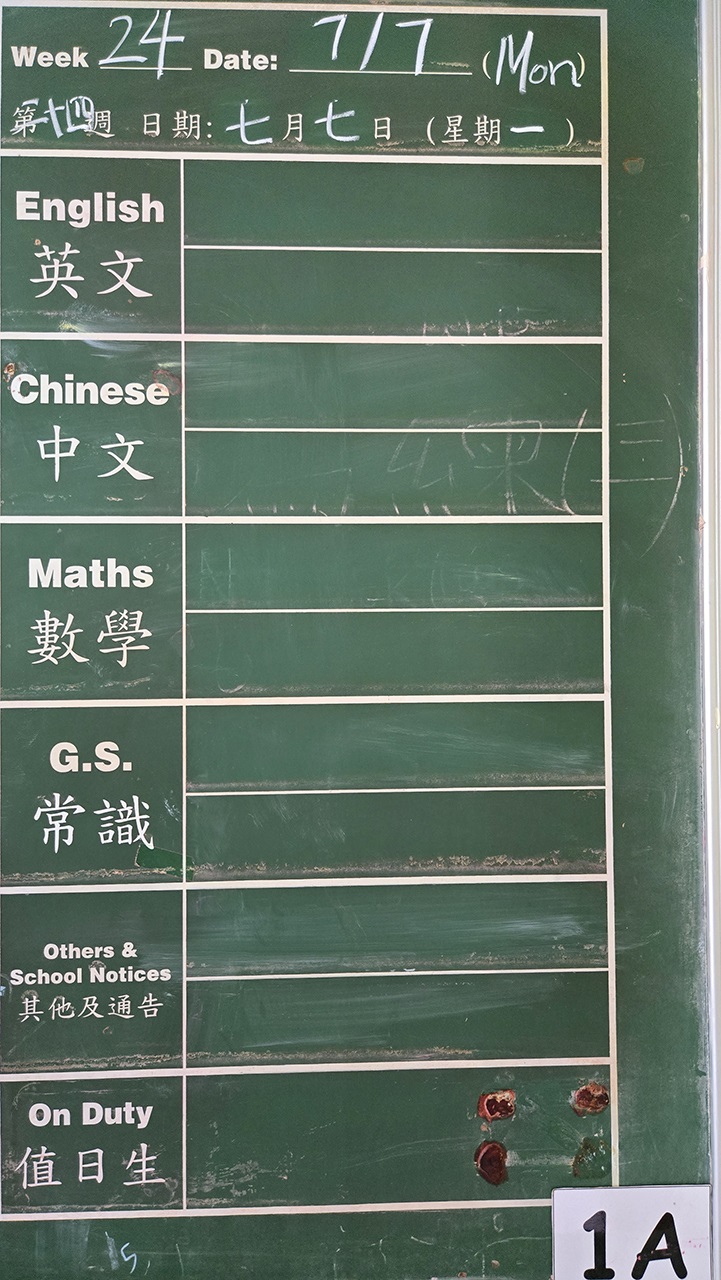 Week 24 Date: 7/7 (Mon)
第二十四週 日期: 七月七日 (星期一)
English
英文
Chinese
中文
Maths
數學
G.S.
常識
Others &
School Notices
其他及通告
On Duty
值日生
1A